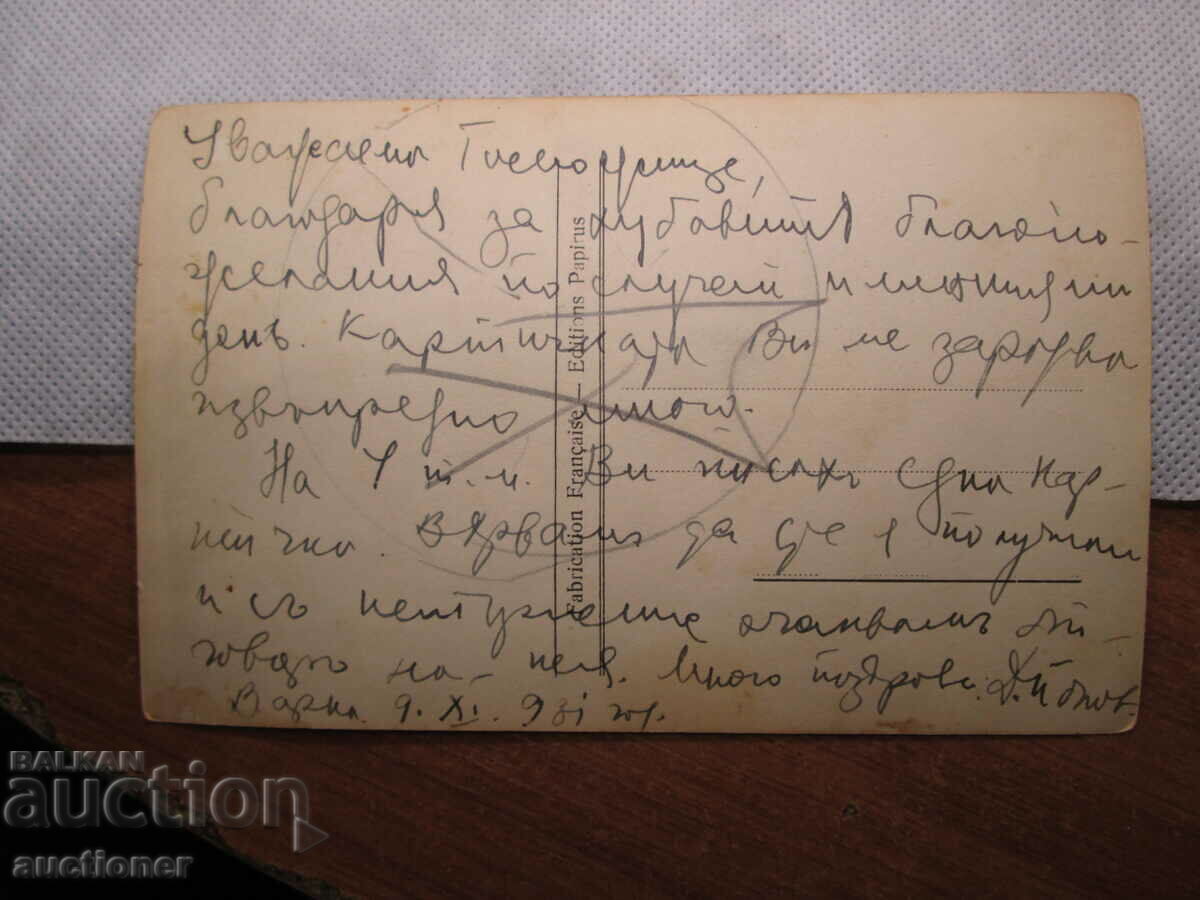 Уважаема Госпожице,
благодаря за хубавитѣ благопо-
желания по случай именния ми
день. Картичката Ви ме зарадва
извънредно много.
На 7 т.м. Ви писахъ една кар-
тичка. Вярвамъ да сте я получили
и съ нетърпение очаквамъ от-
говоръ на нея. Много поздрави. Д. Попов
Варна 9. XI. 931 год.
Fabrication Française — Editions Papirus
BALKAN
auction
auctioner